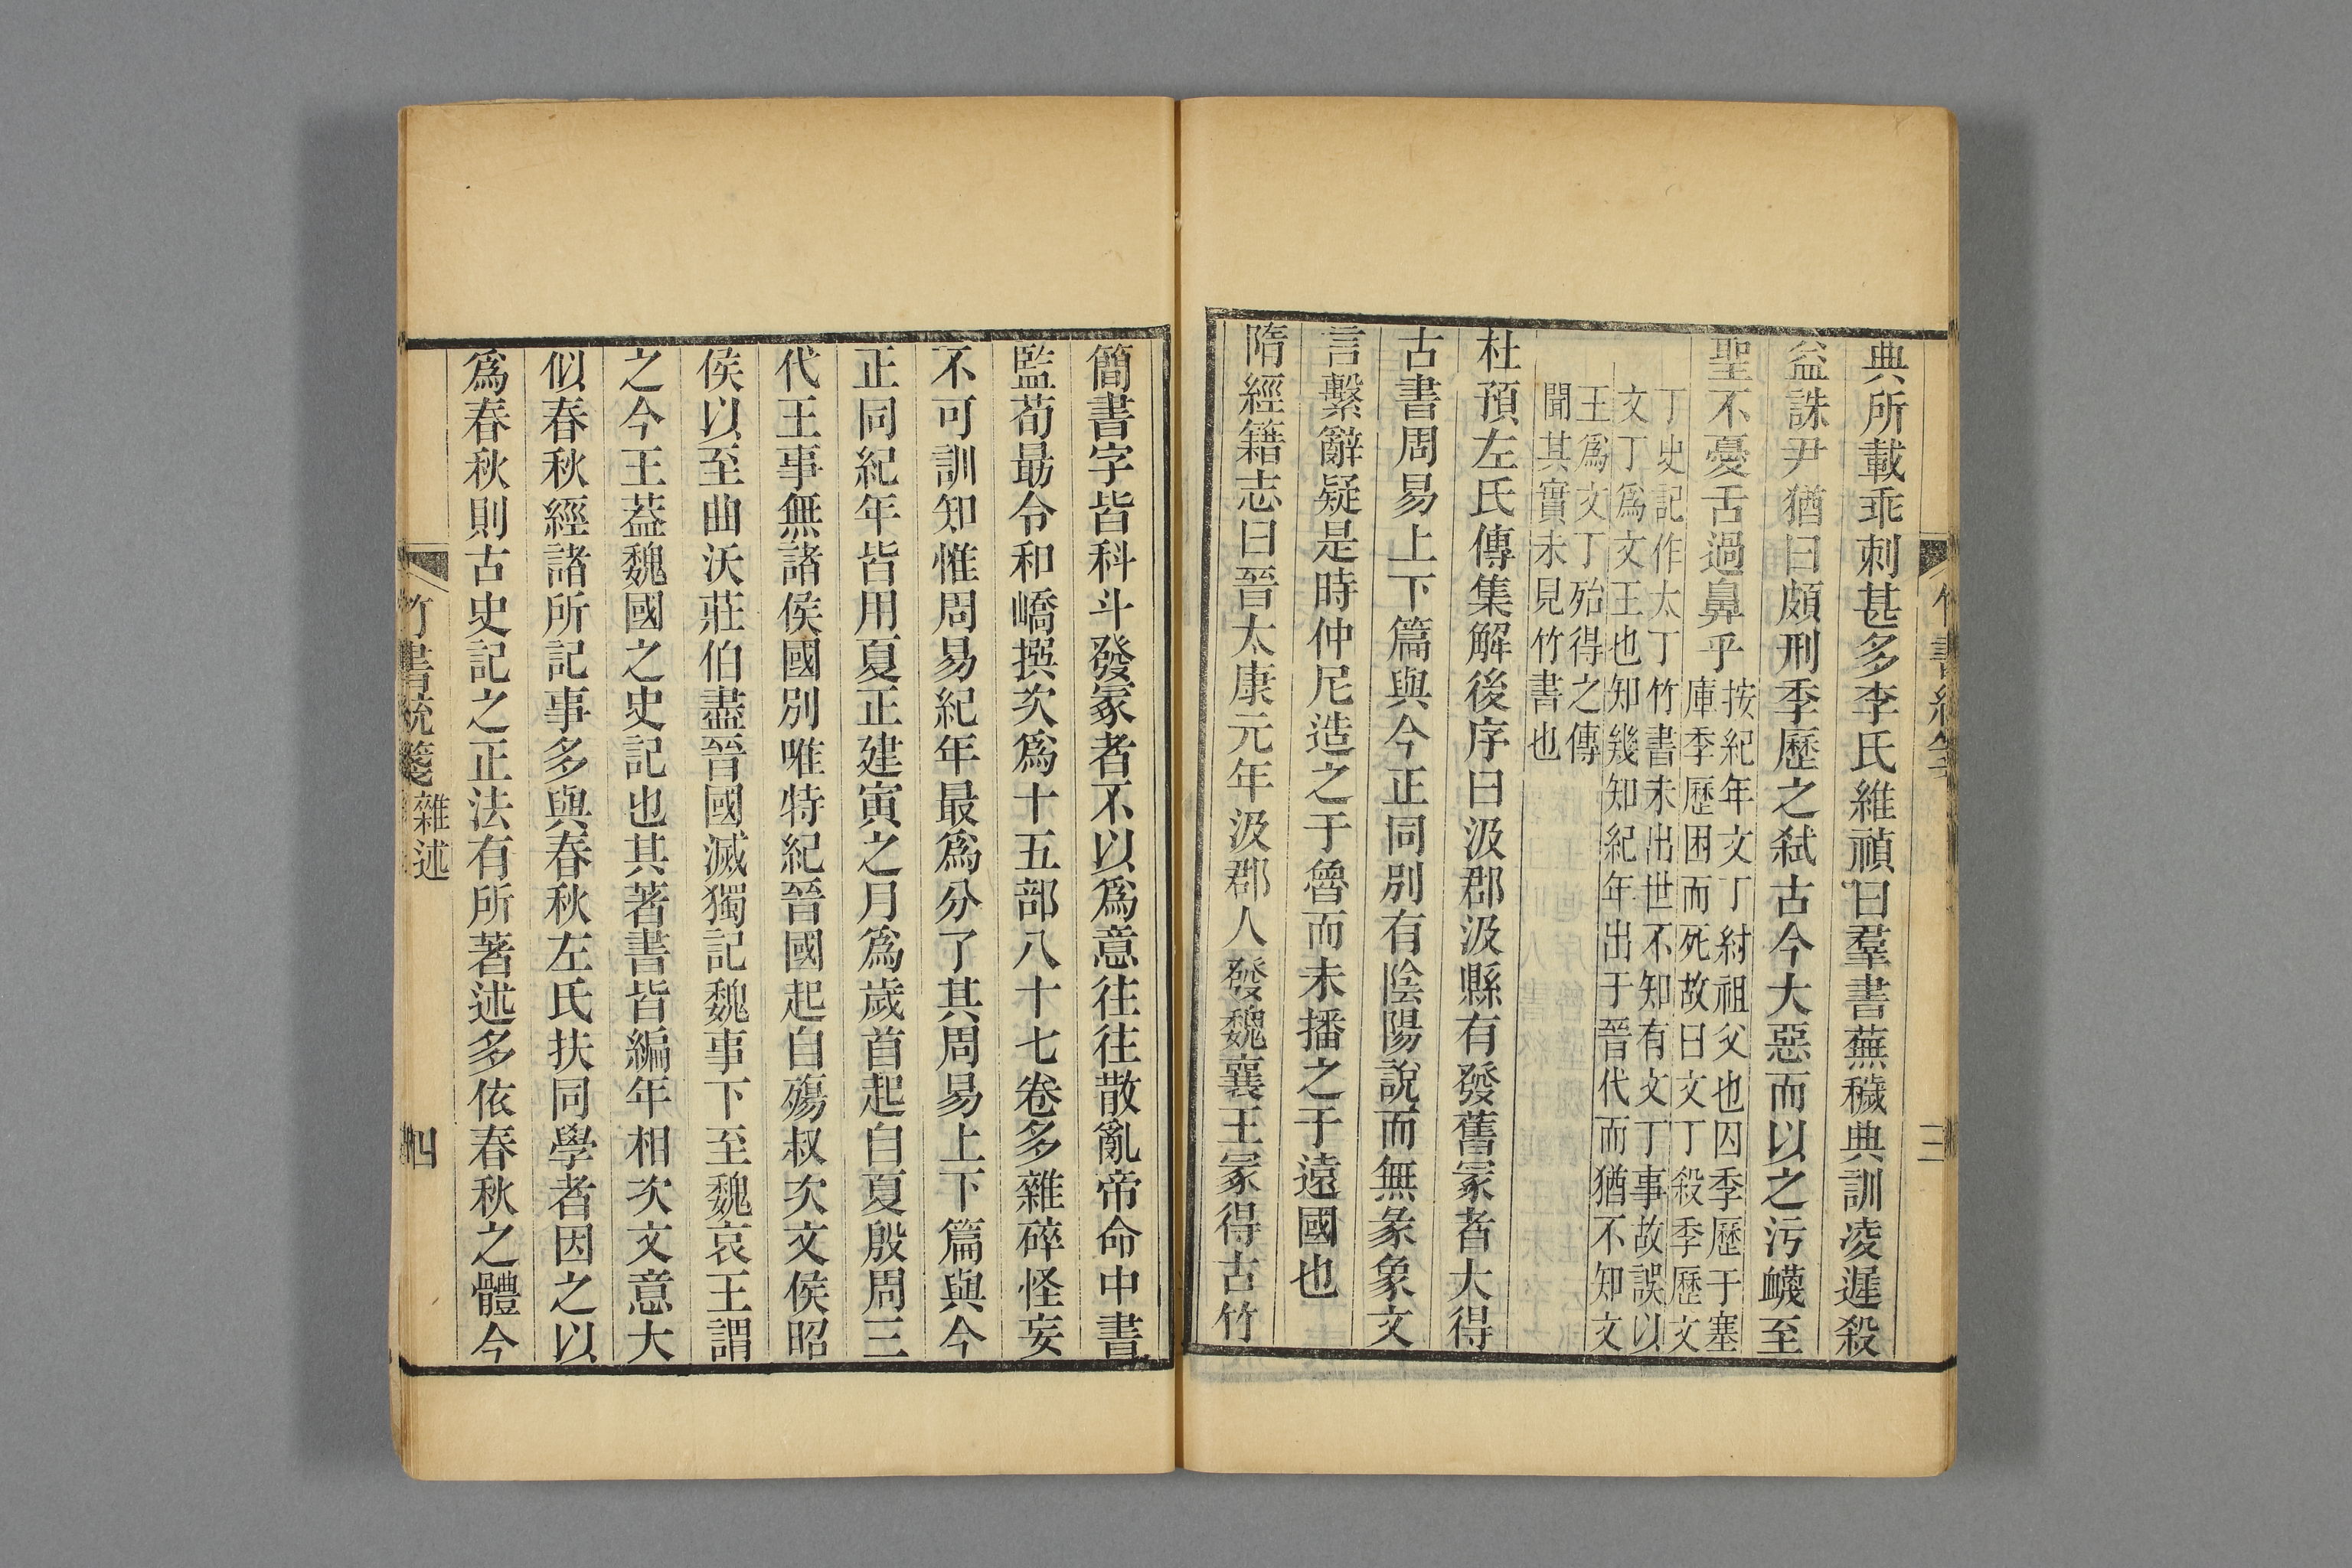 竹書紀年
三
典所載乖刺甚多李氏維禎曰羣書蕪穢典訓凌遲殺
益誅尹猶曰頗刑季歷之弑古今大惡而以之污衊至
聖不憂舌過鼻乎
按紀年文丁紂祖父也囚季歷于塞
庫季歷困而死故曰文丁殺季歷文
丁史記作太丁竹書未出世不知有文丁事故誤以
文丁爲文王也知幾知紀年出于晉代而猶不知文
王爲文丁殆得之傳
聞其實未見竹書也
杜預左氏傳集解後序曰汲郡汲縣有發舊冢者大得
古書周易上下篇與今正同別有陰陽說而無彖象文
言繫辭疑是時仲尼造之于魯而未播之于遠國也
隋經籍志曰晉太康元年汲郡人發魏襄王冢得古竹
簡書字皆科斗發冢者不以爲意往往散亂帝命中書
監荀勗令和嶠撰次爲十五部八十七卷多雜碎怪妄
不可訓知惟周易紀年最爲分了其周易上下篇與今
正同紀年皆用夏正建寅之月爲歲首起自夏殷周三
代王事無諸侯國別唯特紀晉國起自殤叔次文侯昭
侯以至曲沃莊伯盡晉國滅獨記魏事下至魏哀王謂
之今王葢魏國之史記也其著書皆編年相次文意大
似春秋經諸所記事多與春秋左氏扶同學者因之以
爲春秋則古史記之正法有所著述多依春秋之體今
竹書統箋
雜述
四